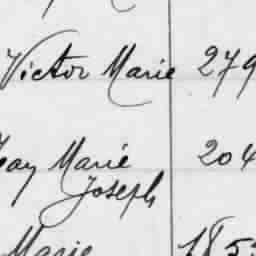 Victor Marie 279
Marie 204
Joseph
Marie 185